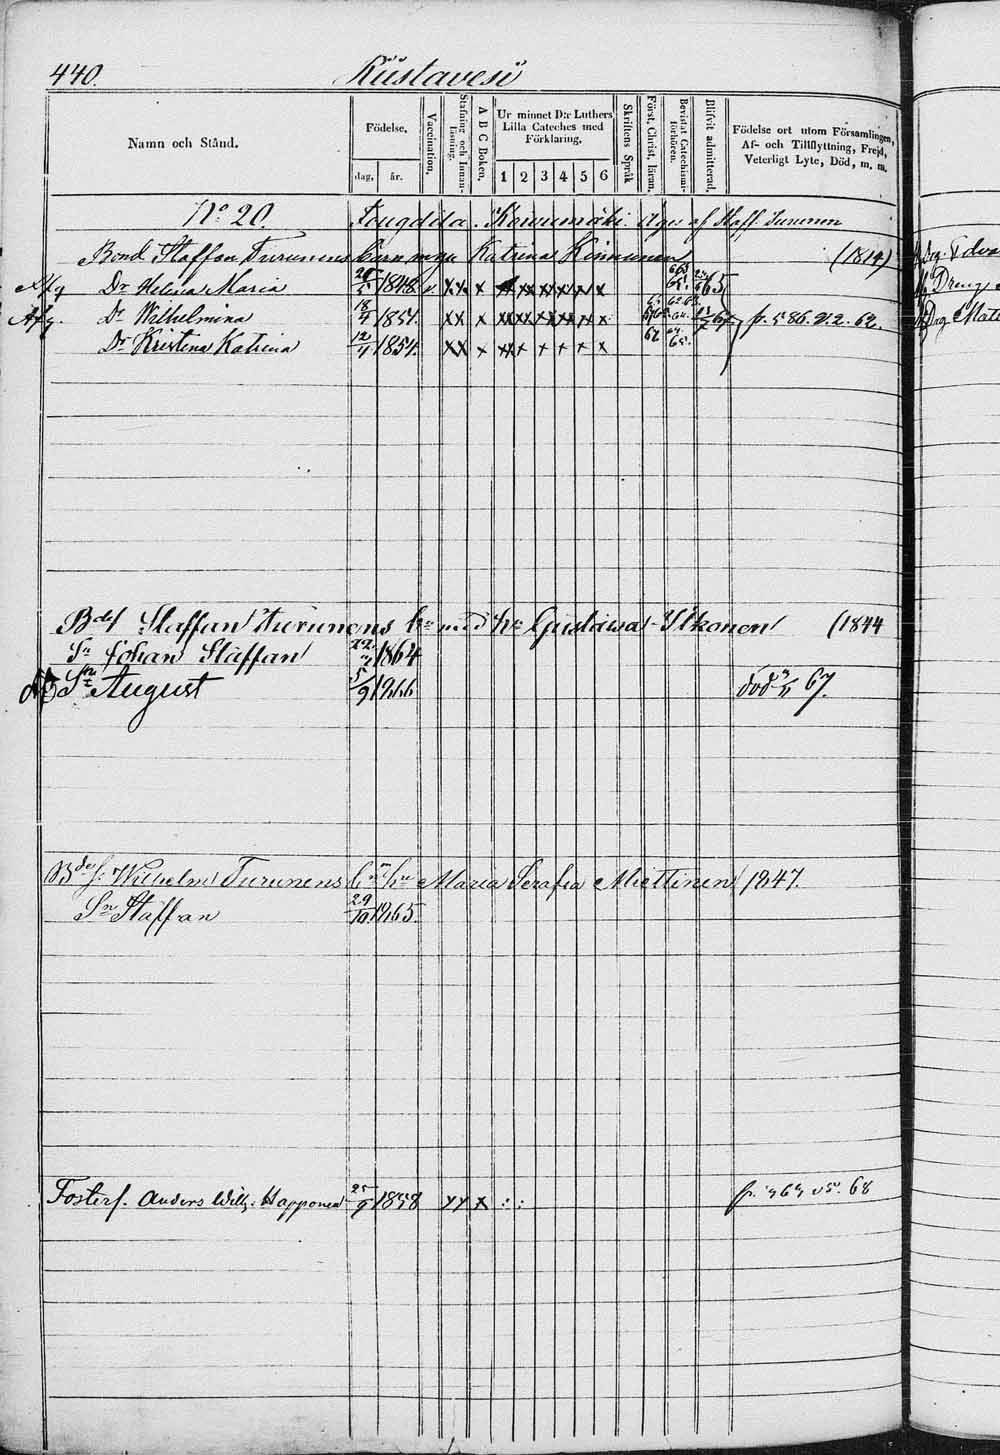 440. Kiistavesi
Namn och Stånd.
Födelse,
dag,
år.
Vaccination,
Stafning och Innan-läsning.
A B C Boken.
Ur minnet D:r Luthers Lilla Cateches med Förklaring.
1 2 3 4 5 6
Skriftens Språk
Först. Christ. läran.
Bevistat Catechismi-förhören.
Blifvit admitterad.
Födelse ort utom Församlingen, Af- och Tillflyttning, Frejd, Veterligt Lyte, Död, m. m.
No 20. Kowumäki. Äges af Staff. Turunen
Bond. Staffan Turunens Barn m. Katrina Kinnunen (1814)
Afg Dr Helena Maria 1848 v. x x x 65
Afg. Dr Wilhelmina 18/4 1851. x x x fr. s 86. 2/2. 62.
Dr Kristina Katrina 12/4 1854. x x x
Bdes Staffan Turunens bn med hu Gustawa Ilkonen (1844
Sn Johan Staffan 1864
Sn August 5/9 1866 död 67.
Bdes s. Wilhelm Turunens bn hu Maria Serafia Miettinen 1847.
Sn Staffan 29/10 1865.
Fosters. Anders Wilh: Happonen 25/9 1858 x x x : : 68